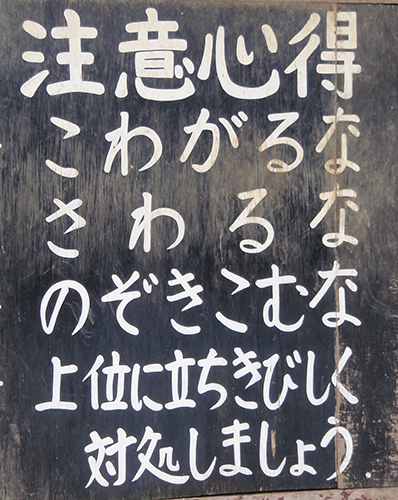 注意心得
こわがるな
さわるな
のぞきこむな
上位に立ちきびしく
対処しましょう.